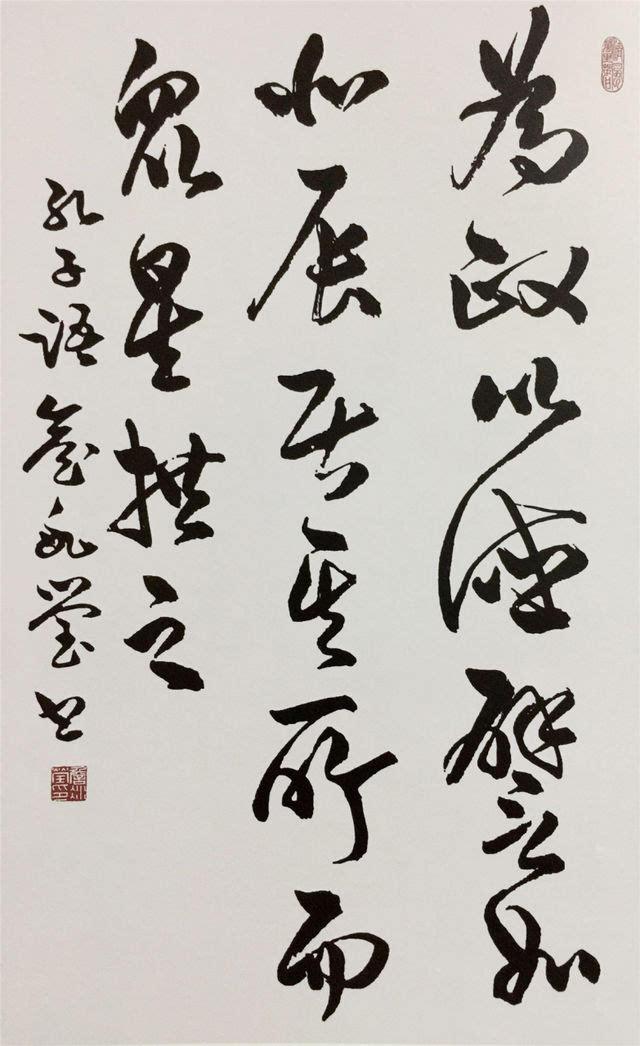 為政以德譬如
北辰居其所而
眾星拱之
孔子語 瑩書